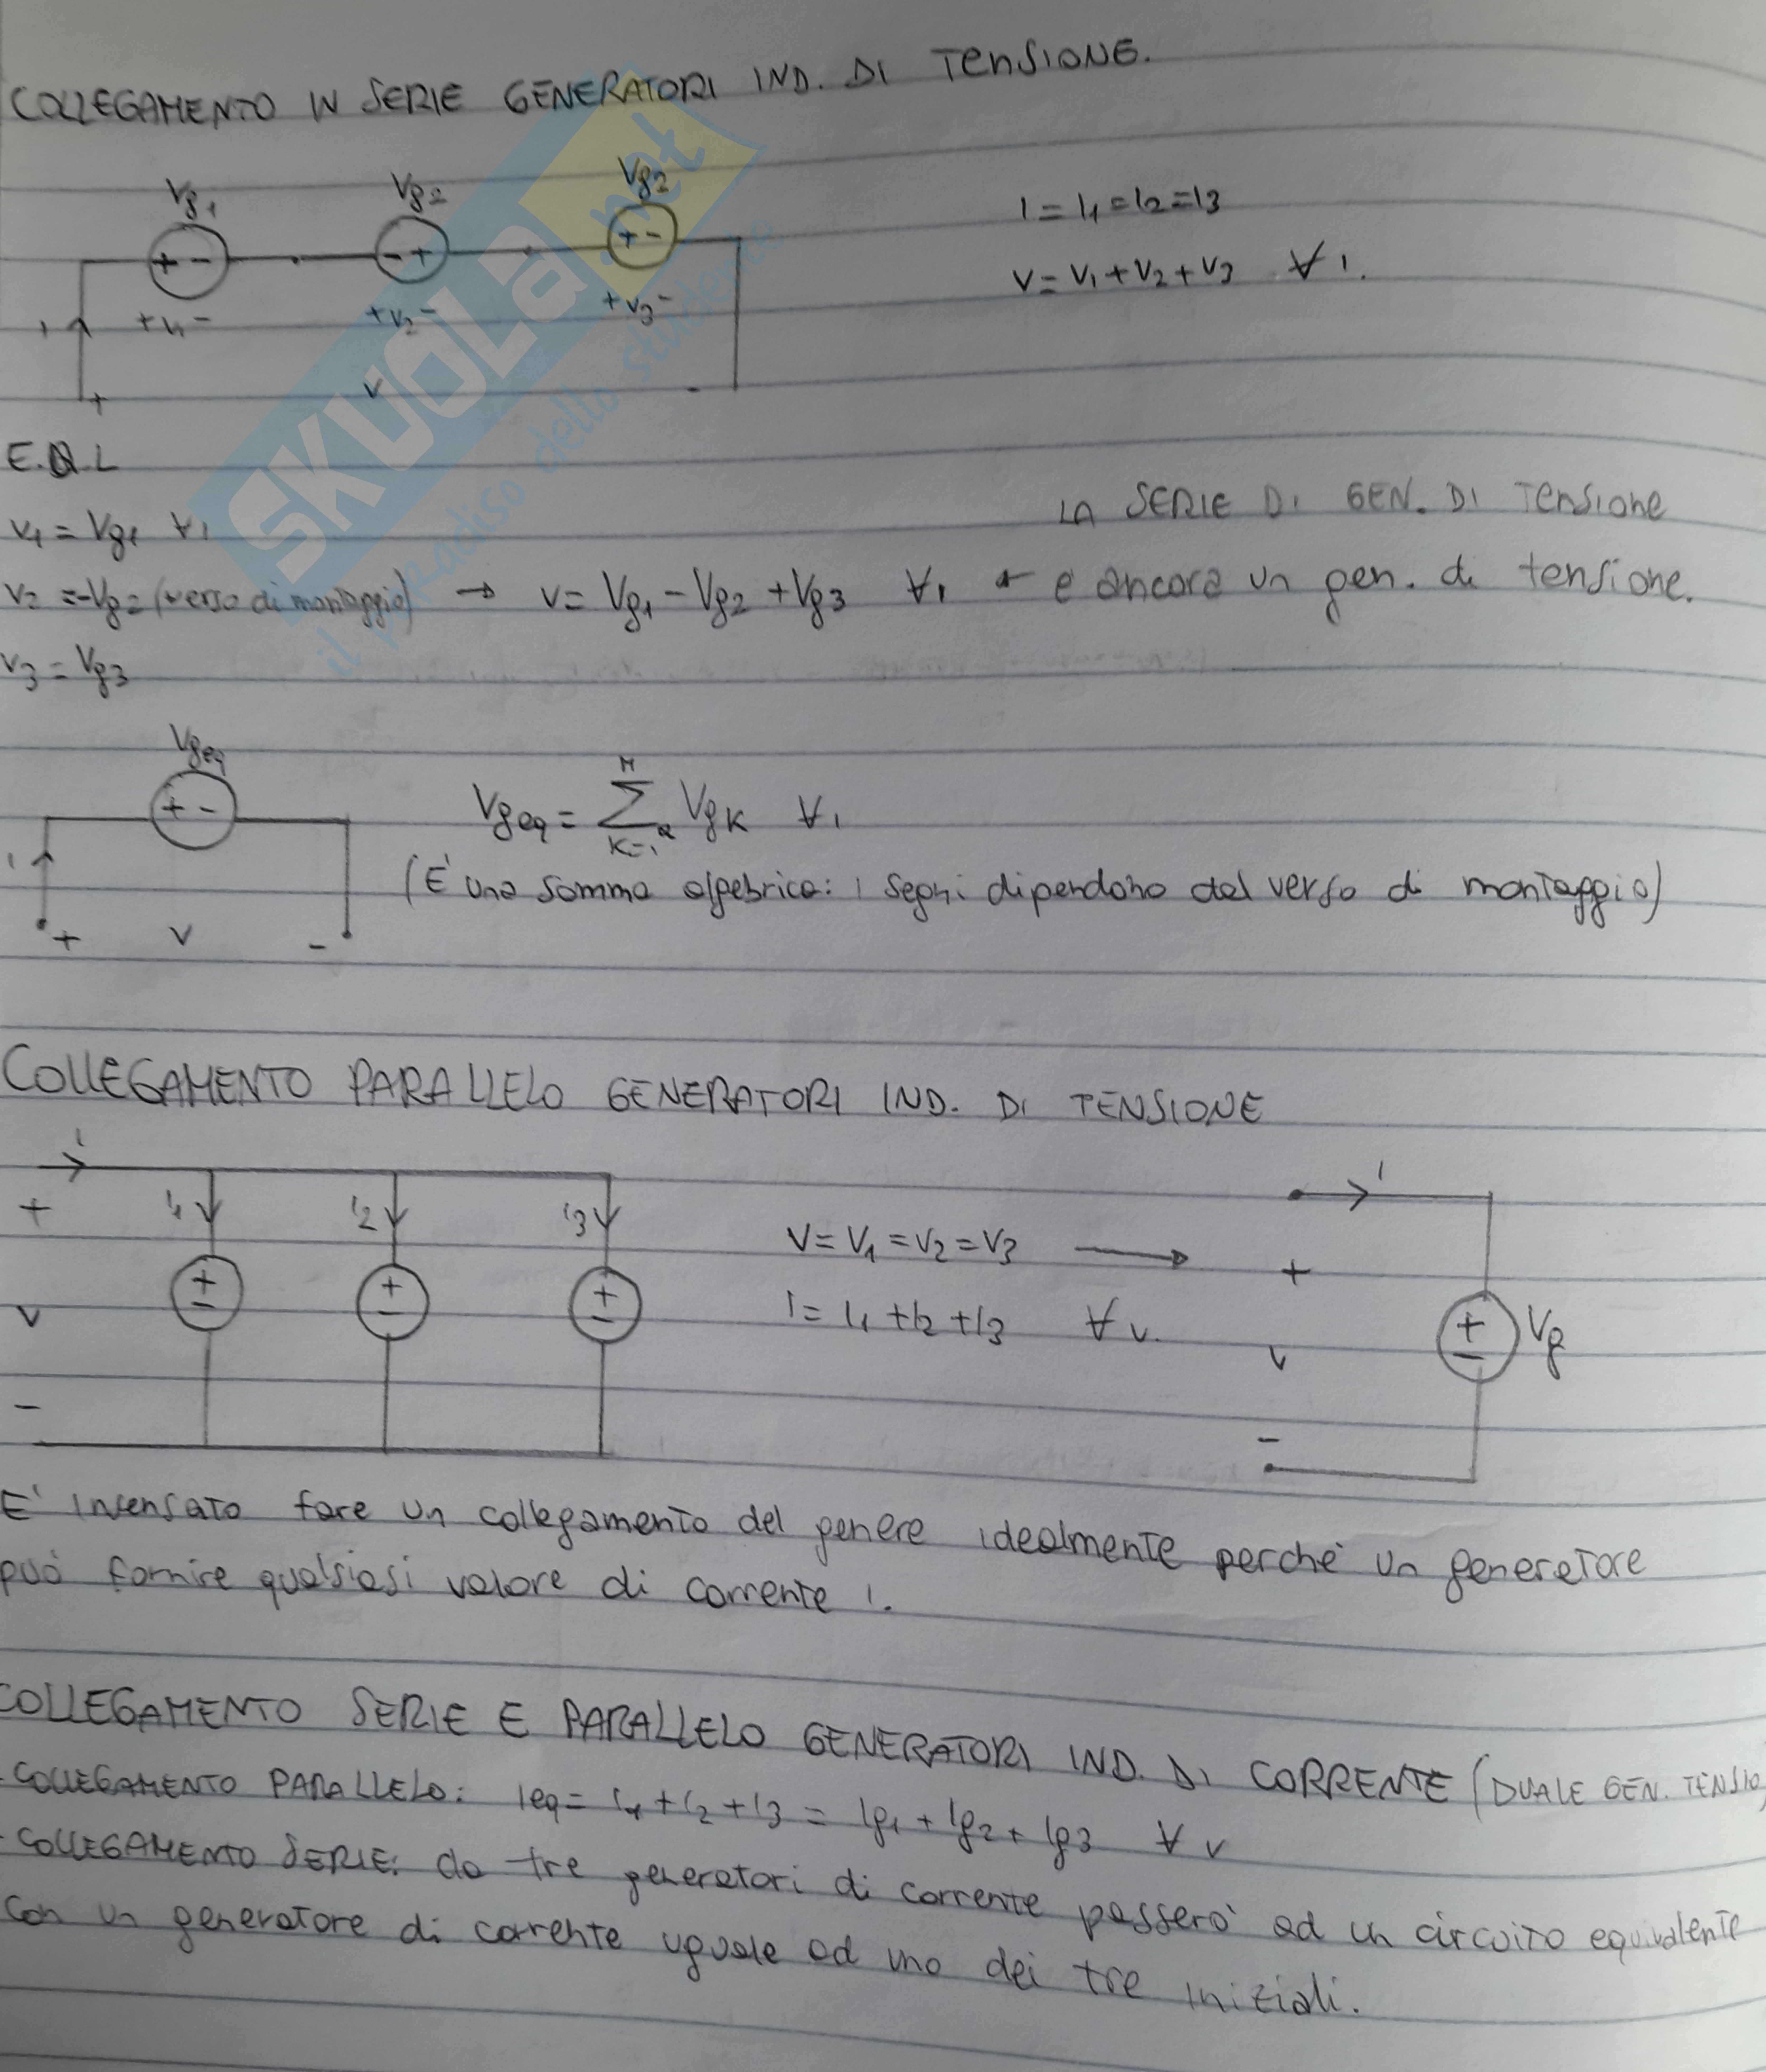 COLLEGAMENTO IN SERIE GENERATORI IND. DI TENSIONE.
Vg1 Vg2 Vg2
+ - - + + -
+ v1 - + v2 - + v3 -
i
+ v -
i = i1 = i2 = i3
v = v1 + v2 + v3 ∀ i.
SKUOLA.net
il paradiso dello studente
E.Q.L
v1 = Vg1 ∀ i
v2 = -Vg2 (verso di montaggio) → v = Vg1 - Vg2 + Vg3 ∀ i ←
v3 = Vg3
LA SERIE DI GEN. DI Tensione
è ancora un gen. di tensione.
Vgeq
+ -
i
+ v -
Vgeq = Σ K=1 Vgk ∀ i
(E' una somma algebrica: i segni dipendono dal verso di montaggio)
COLLEGAMENTO PARALLELO GENERATORI IND. DI TENSIONE
i
+ i1 i2 i3
v + - + - + -
-
v = v1 = v2 = v3 →
i = i1 + i2 + i3 ∀ v.
i
+
v + - Vg
-
E' insensato fare un collegamento del genere idealmente perché un generatore
può fornire qualsiasi valore di corrente i.
COLLEGAMENTO SERIE E PARALLELO GENERATORI IND. DI CORRENTE (DUALE GEN. TENSIO
- COLLEGAMENTO PARALLELO: ieq = i1 + i2 + i3 = ig1 + ig2 + ig3 ∀ v
- COLLEGAMENTO SERIE: da tre generatori di corrente passerò ad un circuito equivalente
con un generatore di corrente uguale ad uno dei tre iniziali.